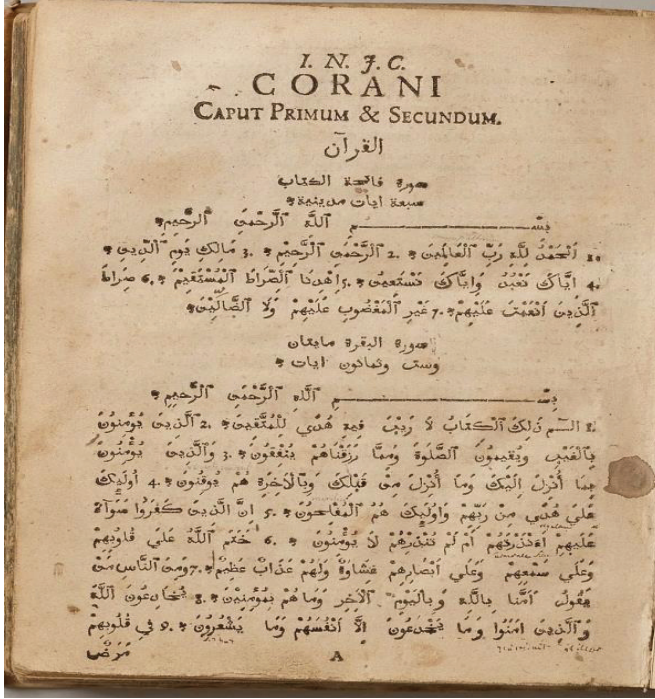 I. N. J. C.
CORANI
CAPUT PRIMUM & SECUNDUM.
القرآن
سورة فاتحة الكتاب
سبعة ايات مدينية
بِسْــــــــمِ اَللَّهِ اَلرَّحْمَنِ اَلرَّحِيمِ
1 اَلْحَمْدُ لِلَّهِ رَبِّ اَلْعَالَمِينَ 2. اَلرَّحْمَنِ اَلرَّحِيمِ 3. مَالِكِ يَوْمِ اَلدِّينِ
4. اِيَّاكَ نَعْبُدُ وَاِيَّاكَ نَسْتَعِينُ 5. اِهْدِنَا اَلصِّرَاطَ اَلْمُسْتَقِيمَ 6. صِرَاطَ
اَلَّذِينَ اَنْعَمْتَ عَلَيْهِمْ 7. غَيْرِ اَلْمَغْضُوبِ عَلَيْهِمْ وَلَا اَلضَّالِّينَ
سورة البقرة مايتان
وست وثمانون ايات
بِسْــــــــمِ اَللَّهِ اَلرَّحْمَنِ اَلرَّحِيمِ
1 الٓمٓ ذَلِكَ اَلْكِتَابُ لَا رَيْبَ فِيهِ هُدًي لِلْمُتَّقِينَ 2. اَلَّذِينَ يُؤْمِنُونَ
بِالْغَيْبِ وَيُقِيمُونَ اَلصَّلَوةَ وَمِمَّا رَزَقْنَاهُمْ يُنْفِقُونَ 3. وَالَّذِينَ يُؤْمِنُونَ
بِمَا أُنْزِلَ اِلَيْكَ وَمَا أُنْزِلَ مِنْ قَبْلِكَ وَبِالْاَخِرَةِ هُمْ يُوقِنُونَ 4. أُولَيِكَ
عَلَي هُدًي مِنْ رَبِّهِمْ وَاُولَيِكَ هُمُ اَلْمُفْلِحُونَ 5. اِنَّ اَلَّذِينَ كَفَرُوا سَوَآءٌ
عَلَيْهِمْ اَءَنْذَرْتَهُمْ اَمْ لَمْ تُنْذِرْهُمْ لَا يُؤْمِنُونَ 6. خَتَمَ اَللَّهُ عَلَي قُلُوبِهِمْ
وَعَلَي سَمْعِهِمْ وَعَلَي اَبْصَارِهِمْ غِشَاوَةٌ وَلَهُمْ عَذَابٌ عَظِيمٌ 7. وَمِنَ اَلنَّاسِ مَنْ
يَقُولُ اَمَنَّا بِاللَّهِ وَبِالْيَوْمِ اَلْاَخِرِ وَمَا هُمْ بِمُؤْمِنِينَ 8. يُخَادِعُونَ اَللَّهَ
وَالَّذِينَ اَمَنُوا وَمَا يَخْدَعُونَ اِلَّا اَنْفُسَهُمْ وَمَا يَشْعُرُونَ 9. فِي قُلُوبِهِمْ
مَرَضٌ
A